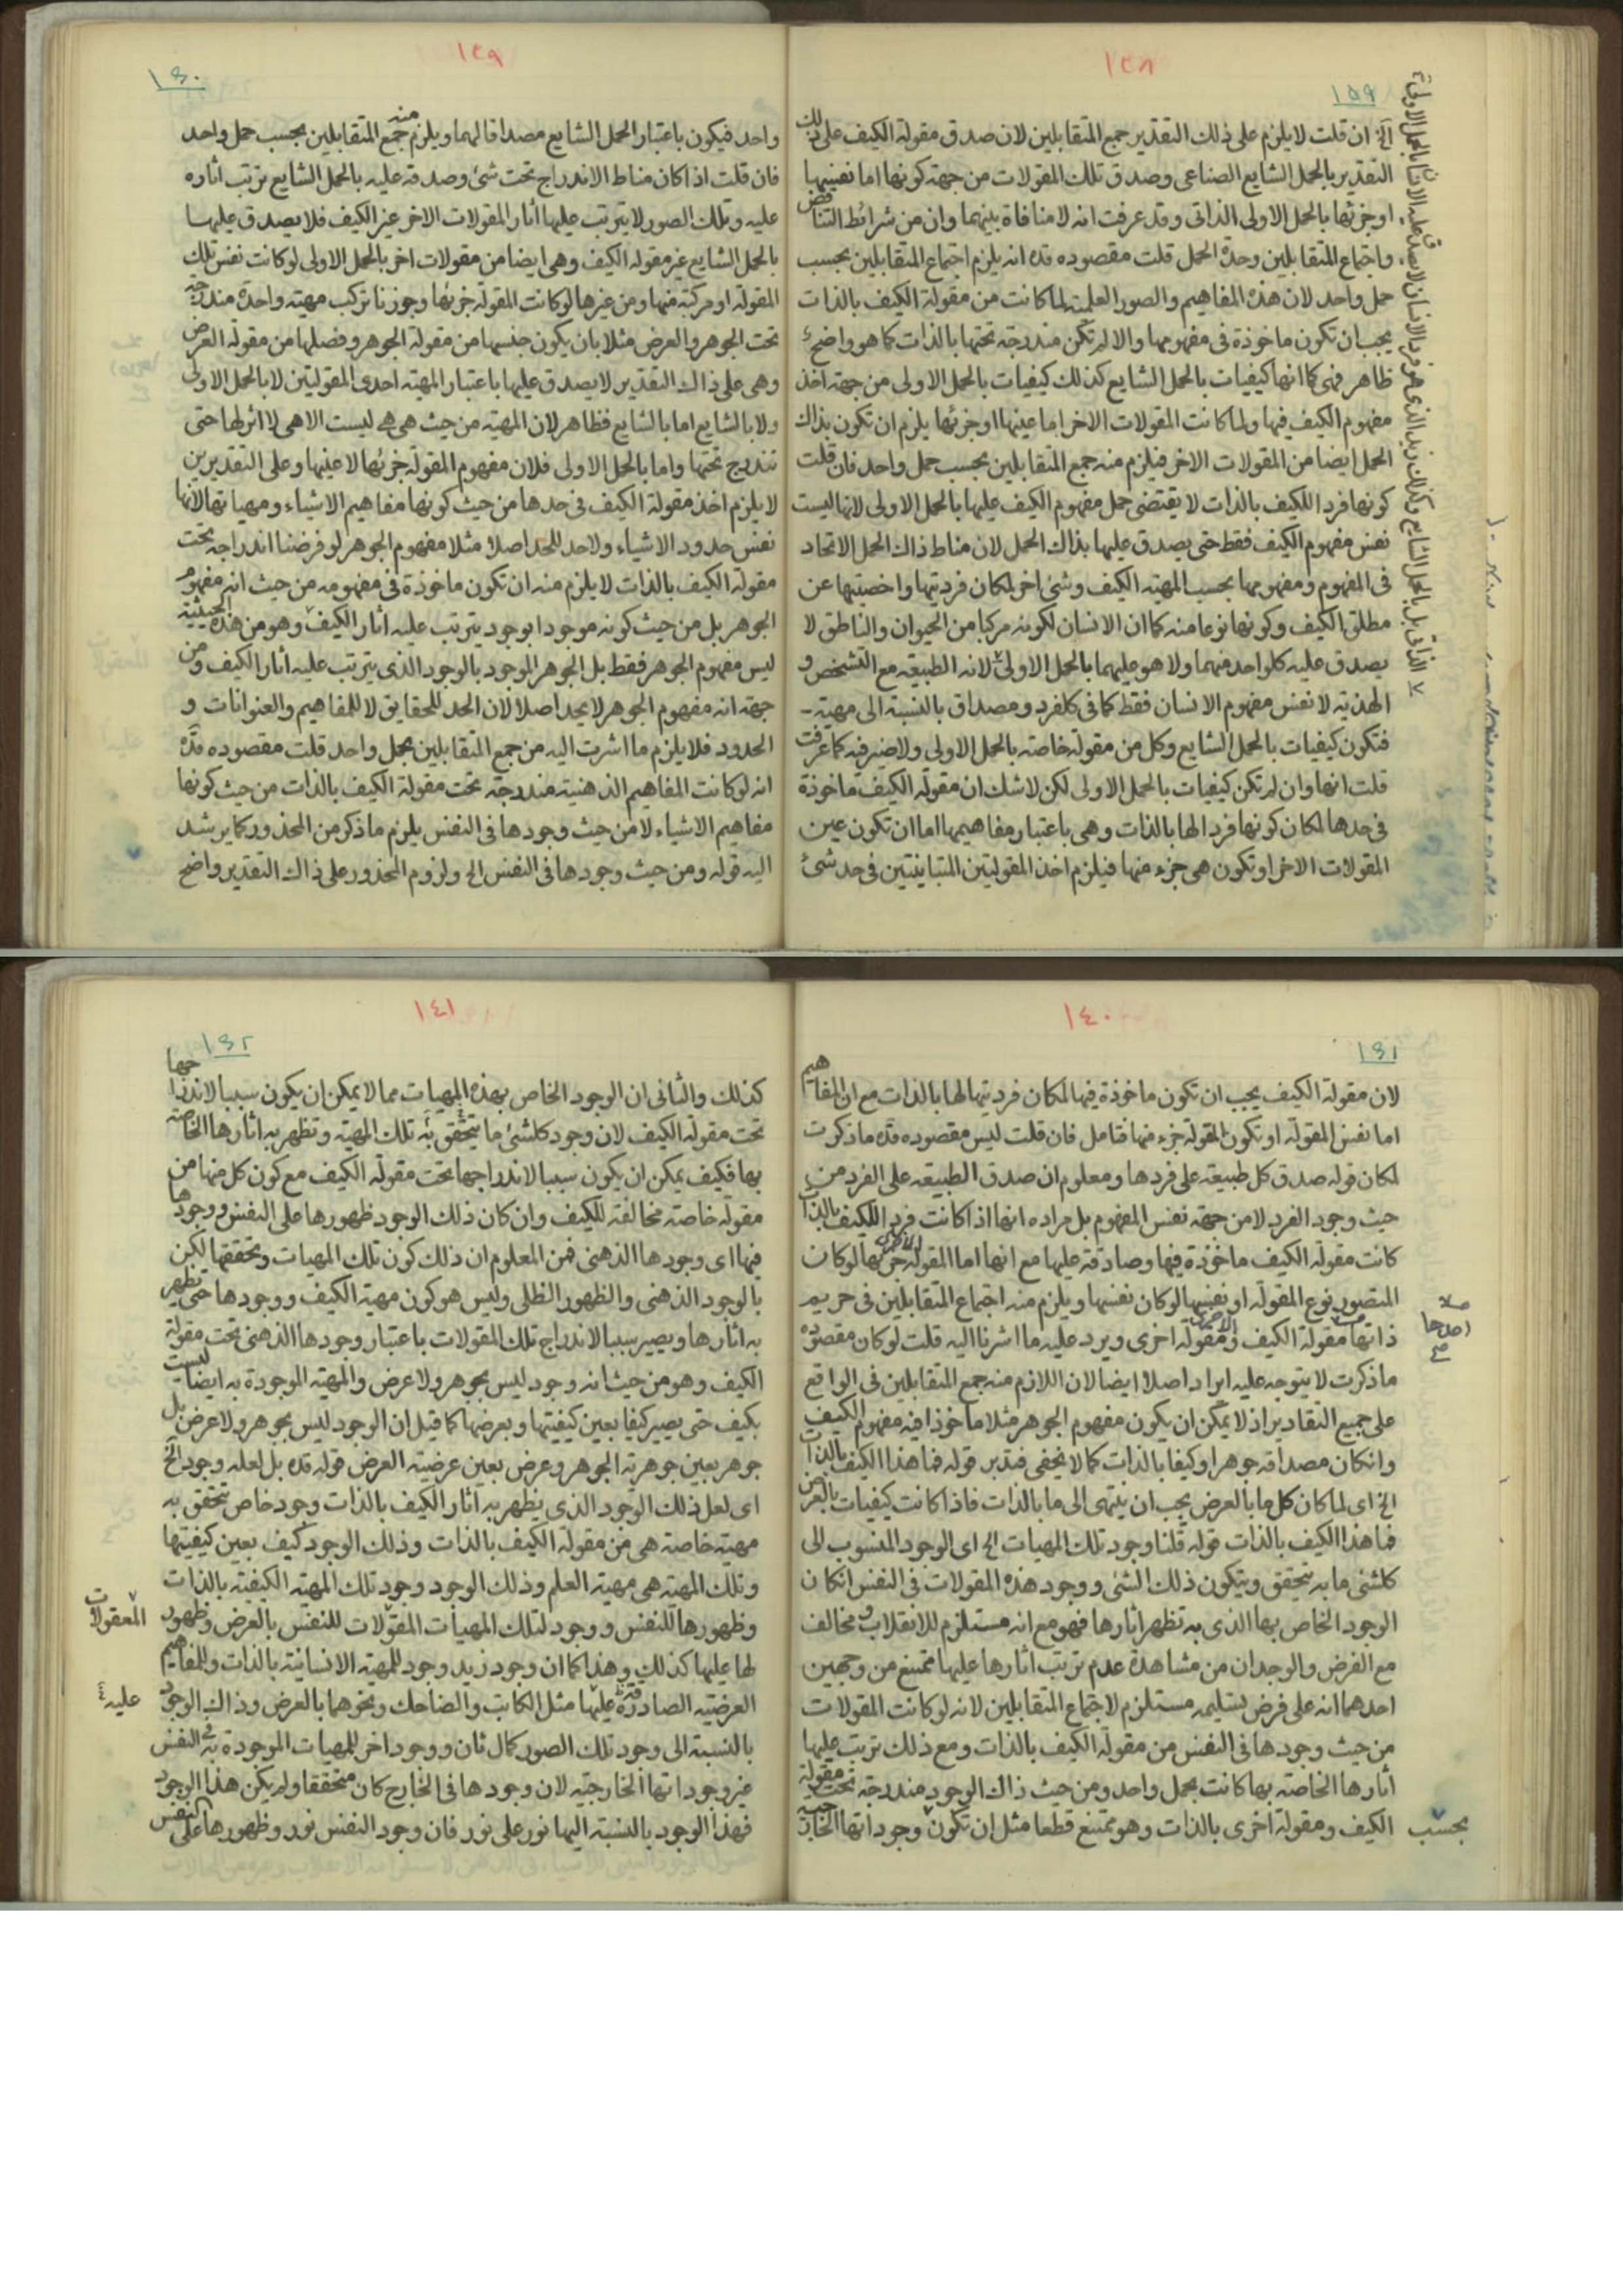 ١٣٨
١٥٩
الخ ان قلت لا يلزم على ذلك التقدير جمع المتقابلين لان صدق مقولة الكيف على ذلك
التقدير بالحمل الشايع الصناعى وصدق تلك المقولات من جهة كونها اما نفسها
او جزئها بالحمل الاولى الذاتى وقد عرفت انه لا منافاة بينهما وان من شرائط التناقض
واجتماع المتقابلين وحدة الحمل قلت مقصوده قده انه يلزم اجتماع المتقابلين بحسب
حمل واحد لان هذه المفاهيم والصور العلمية لما كانت من مقولة الكيف بالذات
يجب ان تكون ماخوذة فى مفهومها والا لم تكن مندرجة تحتها بالذات كما هو واضح
ظاهر فهى كما انها كيفيات بالحمل الشايع كذلك كيفيات بالحمل الاولى من جهة اخذ
مفهوم الكيف فيها ولما كانت المقولات الاخر اما عينها او جزئها يلزم ان تكون بذاك
الحمل ايضا من المقولات الاخر فيلزم منه جمع المتقابلين بحسب حمل واحد فان قلت
كونها فردا للكيف بالذات لا يقتضى حمل مفهوم الكيف عليها بالحمل الاولى لانها ليست
نفس مفهوم الكيف فقط حتى يصدق عليها بذاك الحمل لان مناط ذاك الحمل الاتحاد
فى المفهوم ومفهومها بحسب المهية الكيف وشئ اخر لمكان فرديتها واخصيتها عن
مطلق الكيف وكونها نوعا منه كما ان الانسان لكونه مركبا من الحيوان والناطق لا
يصدق عليه كلواحد منهما ولا هو عليهما بالحمل الاولى لانه الطبيعه مع التشخص و
الهذية لا نفس مفهوم الانسان فقط كما فى كلفرد ومصداق بالنسبة الى مهية
فتكون كيفيات بالحمل الشايع وكل من مقولة خاصة بالحمل الاولى ولا ضير فيه كما عرفت
قلت انها وان لم تكن كيفيات بالحمل الاولى لكن لا شك ان مقولة الكيف ماخوذة
فى حدها لمكان كونها فردا لها بالذات وهى باعتبار مفاهيمها اما ان تكون عين
المقولات الاخر او تكون هى جزء منها فيلزم اخذ المقولتين المتباينتين فى حد شئ
١٣٩
١٦٠
واحد فيكون باعتبار الحمل الشايع مصداقا لهما ويلزم منه جمع المتقابلين بحسب حمل واحد
فان قلت اذا كان مناط الاندراج تحت شئ وصدقه عليه بالحمل الشايع ترتب اثاره
عليه وتلك الصور لا يترتب عليها اثار المقولات الاخر غير الكيف فلا يصدق عليها
بالحمل الشايع غير مقوله الكيف وهى ايضا من مقولات اخر بالحمل الاولى لو كانت نفس تلك
المقولة او مركبة منها ومن غيرها لو كانت المقولة جزئها وجوزنا تركب مهية واحدة مندرجة
تحت الجوهر والعرض مثلا بان يكون جنسها من مقولة الجوهر وفصلها من مقولة العرض
وهى على ذاك التقدير لا يصدق عليها باعتبار المهية احدى المقولتين لا بالحمل الاولى
ولا بالشايع اما بالشايع فظاهر لان المهية من حيث هى هى ليست الا هى لا اثر لها حتى
تندرج تحتها واما بالحمل الاولى فلان مفهوم المقولة جزئها لا عينها وعلى التقديرين
لا يلزم اخذ مقولة الكيف فى حدها من حيث كونها مفاهيم الاشياء ومهياتها لانها
نفس حدود الاشياء ولا حد للحد اصلا مثلا مفهوم الجوهر لو فرضنا اندراجه تحت
مقولة الكيف بالذات لا يلزم منه ان تكون ماخوذة فى مفهومه من حيث انه مفهوم
الجوهر بل من حيث كونه موجودا بوجود يترتب عليه اثار الكيف وهو من هذه الحيثية
ليس مفهوم الجوهر فقط بل الجوهر الموجود بالوجود الذى يترتب عليه اثار الكيف ومن
جهة انه مفهوم الجوهر لا يحد اصلا لان الحد للحقايق لا للمفاهيم والعنوانات و
الحدود فلا يلزم ما اشرت اليه من جمع المتقابلين بحمل واحد قلت مقصوده قده
انه لو كانت المفاهيم الذهنية مندرجة تحت مقولة الكيف بالذات من حيث كونها
مفاهيم الاشياء لا من حيث وجودها فى النفس يلزم ما ذكر من المحذور كما يرشد
اليه قوله ومن حيث وجودها فى النفس الخ ولزوم المحذور على ذاك التقدير واضح
١٤٠
١٦١
لان مقولة الكيف يجب ان تكون ماخوذة فيها لمكان فرديتها لها بالذات مع ان المفاهيم
اما نفس المقولة او تكون المقولة جزء منها فتامل فان قلت ليس مقصوده قده ما ذكرت
لمكان قوله صدق كل طبيعة على فردها ومعلوم ان صدق الطبيعه على الفرد من
حيث وجود الفرد لا من جهة نفس المفهوم بل مراده انها اذا كانت فردا للكيف بالذات
كانت مقولة الكيف ماخوذة فيها وصادقة عليها مع انها اما المقولة الاخرى جزئها لو كان
المتصور نوع المقولة او نفسها لو كان نفسها ويلزم منه اجتماع المتقابلين فى حريم
ذاتها مقولة الكيف ومقولة اخرى ويرد عليه ما اشرنا اليه قلت لو كان مقصوده
ما ذكرت لا يتوجه عليه ايراد اصلا ايضا لان اللازم منه جمع المتقابلين فى الواقع
على جميع التقادير اذ لا يمكن ان يكون مفهوم الجوهر مثلا ماخوذا فيه مفهوم الكيف
وانكان مصداقه جوهرا وكيفا بالذات كما لا يخفى فتدبر قوله فما هذا الكيف بالذات
الخ اى لما كان كل ما بالعرض يجب ان ينتهى الى ما بالذات فاذا كانت كيفيات بالعرض
فما هذا الكيف بالذات قوله قلنا وجود تلك المهيات الخ اى الوجود المنسوب الى
كلشئ ما به يتحقق ويتكون ذلك الشئ ووجود هذه المقولات فى النفس انكان
الوجود الخاص بها الذى به تظهر اثارها فهو مع انه مستلزم للانقلاب ومخالف
مع الفرض والوجدان من مشاهدة عدم ترتب اثارها عليها ممتنع من وجهين
احدهما انه على فرض تسليمه مستلزم لاجتماع المتقابلين لانه لو كانت المقولات
من حيث وجودها فى النفس من مقولة الكيف بالذات ومع ذلك ترتب عليها
اثارها الخاصة بها كانت بحمل واحد ومن حيث ذاك الوجود مندرجة تحت مقولة
الكيف ومقولة اخرى بالذات وهو ممتنع قطعا مثل ان تكون وجوداتها الخارجية
بحسب
١٤١
١٦٢
كذلك والثانى ان الوجود الخاص بهذه المهيات مما لا يمكن ان يكون سببا لاندراجها
تحت مقوله الكيف لان وجود كلشئ ما يتحقق به تلك المهية وتظهر به اثارها الخاصة
بها فكيف يمكن ان يكون سببا لاندراجها تحت مقولة الكيف مع كون كل منها من
مقولة خاصة مخالفة للكيف وان كان ذلك الوجود ظهورها على النفس ووجودها
فيها اى وجودها الذهنى فمن المعلوم ان ذلك كون تلك المهيات وتحققها لكن
بالوجود الذهنى والظهور الظلى وليس هو كون مهية الكيف ووجودها حتى تظهر
به اثارها ويصير سببا لاندراج تلك المقولات باعتبار وجودها الذهنى تحت مقولة
الكيف وهو من حيث انه وجود ليس بجوهر ولا عرض والمهية الموجودة به ايضا ليست
بكيف حتى يصير كيفا بعين كيفيتها وبعرضها كما قبل ان الوجود ليس بجوهر ولا عرض بل
جوهر بعين جوهرية الجوهر وعرض بعين عرضية العرض قوله قده بل لعله وجود الخ
اى لعل ذلك الوجود الذى يظهر به اثار الكيف بالذات وجود خاص تتحقق به
مهية خاصة هى من مقولة الكيف بالذات وذلك الوجود كيف بعين كيفيتها
وتلك المهية هى مهية العلم وذلك الوجود وجود تلك المهية الكيفية بالذات
وظهورها للنفس ووجود لتلك المهيات المقولات للنفس بالعرض وظهور
المعقولات
لها عليها كذلك وهذا كما ان وجود زيد وجود للمهية الانسانية بالذات وللمفاهيم
العرضية الصادقة عليها مثل الكاتب والضاحك ونحوهما بالعرض وذاك الوجود
عليه
بالنسبة الى وجود تلك الصور كمال ثان ووجود اخر للمهيات الموجودة به فى النفس
غير وجوداتها الخارجيه لان وجودها فى الخارج كان متحققا ولم يكن هذا الوجود
فهذا الوجود بالنسبة اليها نور على نور فان وجود النفس نور وظهورها على النفس